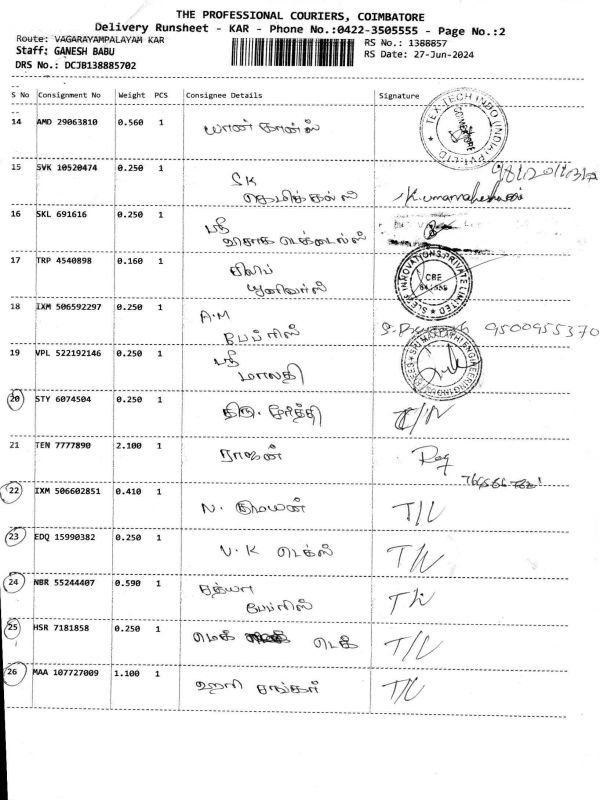 THE PROFESSIONAL COURIERS, COIMBATORE
Delivery Runsheet - KAR - Phone No.:0422-3505555 - Page No.:2
Route: VAGARAYAMPALAYAM KAR
RS No.: 1388857
Staff: GANESH BABU
RS Date: 27-Jun-2024
DRS No.: DCJB138885702
S No Consignment No Weight PCS Consignee Details Signature
14 AMD 29063810 0.560 1
TEX-TECH INDO (INDIA) PVT. LTD. COIMBATORE
15 SVK 10520474 0.250 1
SK
கெமிக்கல்ஸ்
16 SKL 691616 0.250 1
ஸ்ரீ
டெக்டைல்ஸ்
17 TRP 4540898 0.160 1
INNOVATIONS PRIVATE LIMITED CBE
18 IXM 506592297 0.250 1
A.M
பேப்ரிஸ்
9500955370
19 VPL 522192146 0.250 1
ஸ்ரீ
மாலதி
20 STY 6074504 0.250 1
திரு.
21 TEN 7777890 2.100 1
ராஜன்
22 IXM 506602851 0.410 1
N.
T/L
23 EDQ 15990382 0.250 1
V.K டெக்ஸ்
T/L
24 NBR 55244407 0.590 1
சத்யா
பேப்ரிஸ்
T/L
25 HSR 7181858 0.250 1
மெக் டெக்
T/L
26 MAA 107727009 1.100 1
ஹரி சங்கர்
T/L